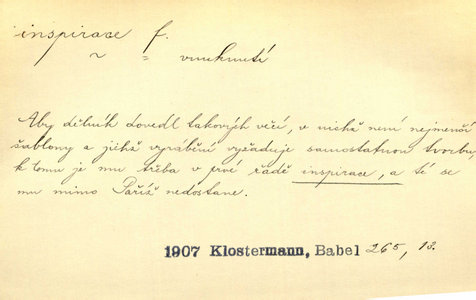 inspirace f.
~ = vnuknutí
Aby dělník dovedl takových věcí, v nichž není nejmenší
šablony a jichž vyrábění vyžaduje samostatnou tvorbu,
k tomu je mu třeba v prvé řadě inspirace, a té se
mu mimo Paříž nedostane.
1907 Klostermann, Babel 265, 13.